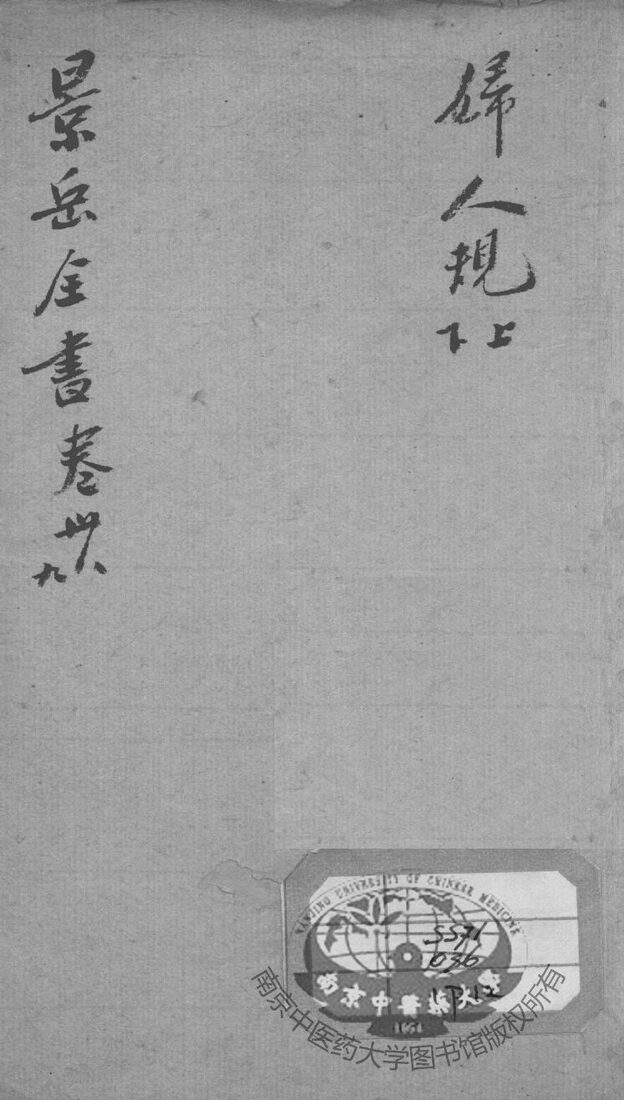 婦人規上下
景岳全書卷卅八九
NANJING UNIVERSITY OF CHINESE MEDICINE
SS71
036
南京中醫藥大學
1954
南京中医药大学图书馆版权所有